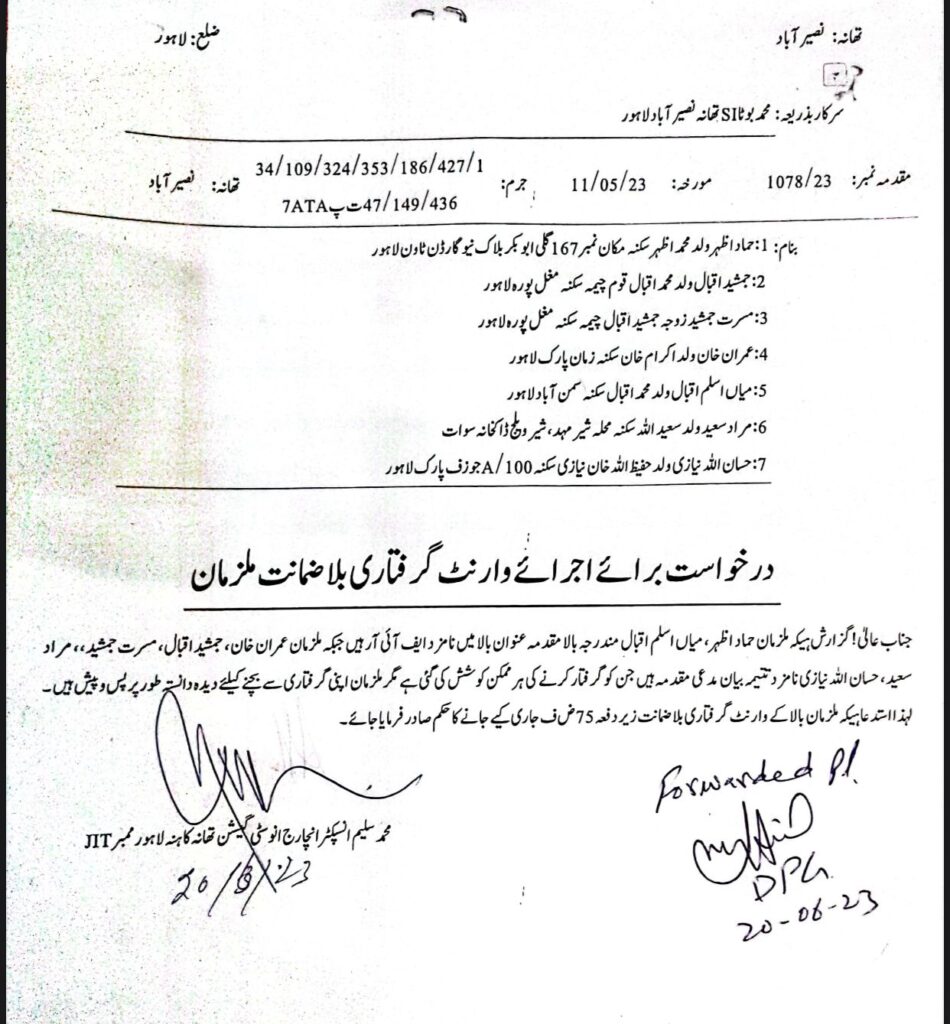 تھانہ: نصیر آباد ضلع: لاہور
سرکار بذریعہ: محمد بوٹا SI تھانہ نصیر آباد لاہور
مقدمہ نمبر: 1078/23 مورخہ: 11/05/23 جرم: 34/109/324/353/186/427/1 تھانہ: نصیر آباد
47/149/436 ت پ 7ATA
بنام: 1: حماد اظہر ولد محمد اظہر سکنہ مکان نمبر 167 گلی ابو بکر بلاک نیو گارڈن ٹاون لاہور
2: جمشید اقبال ولد محمد اقبال قوم چیمہ سکنہ مغل پورہ لاہور
3: مسرت جمشید زوجہ جمشید اقبال چیمہ سکنہ مغل پورہ لاہور
4: عمران خان ولد اکرام خان سکنہ زمان پارک لاہور
5: میاں اسلم اقبال ولد محمد اقبال سکنہ سمن آباد لاہور
6: مراد سعید ولد سعید اللہ سکنہ محلہ شیر مہد، شیر ویلج ڈاکخانہ سوات
7: حسان اللہ نیازی ولد حفیظ اللہ خان نیازی سکنہ 100/A جوزف پارک لاہور
درخواست برائے اجرائے وارنٹ گرفتاری بلا ضمانت ملزمان
جناب عالیٰ! گزارش ہیکہ ملزمان حماد اظہر، میاں اسلم اقبال مندرجہ بالا مقدمہ عنوان بالا میں نامزد ایف آئی آر ہیں جبکہ ملزمان عمران خان، جمشید اقبال، مسرت جمشید،، مراد
سعید، حسان اللہ نیازی نامزد تتیمہ بیان مدعی مقدمہ ہیں جن کو گرفتار کرنے کی ہر ممکن کوشش کی گئی ہے مگر ملزمان اپنی گرفتاری سے بچنے کیلئے دیدہ دانستہ طور پر پس و پیش ہیں۔
لہذا استدعا ہیکہ ملزمان بالا کے وارنٹ گرفتاری بلا ضمانت زیر دفعہ 75 ض ف جاری کیے جانے کا حکم صادر فرمایا جائے۔
Forwarded Pl.
محمد سلیم انسپکٹر انچارج انوسٹی گیشن تھانہ کاہنہ لاہور ممبر JIT
DPG
20-06-23